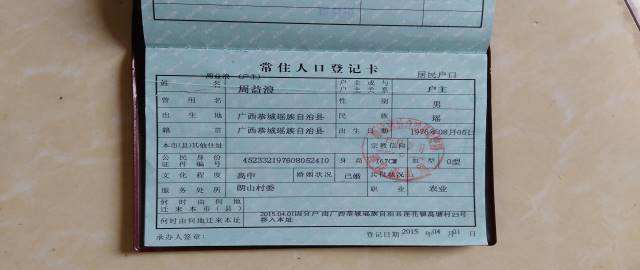 常住人口登记卡
周益浪（户主） 居民户口
姓名 周益浪 户主或与户主关系 户主
曾用名 性别 男
出生地 广西恭城瑶族自治县 民族 瑶
籍贯 广西恭城瑶族自治县 出生日期 1976年08月05日
本市（县）其他住址 宗教信仰
公民身份证件编号 452332197608052410 身高 167CM 血型 O型
文化程度 高中 婚姻状况 已婚 兵役状况
服务处所 朗山村委 职业 农业
何时由何地迁来本市（县）
何时由何地迁来本址 2015.04.01因分户 由广西恭城瑶族自治县莲花镇高塘村23号移入本址
承办人签章： 登记日期：2015年04月01日